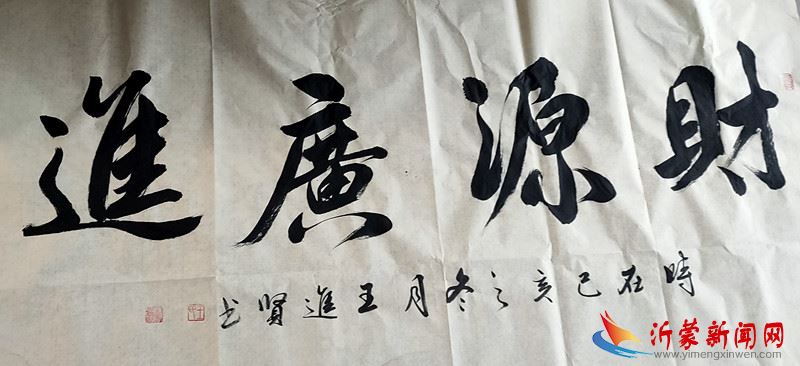 財源廣進
時在己亥之冬月王進賢书
沂蒙新闻网
www.yimengxinwen.com